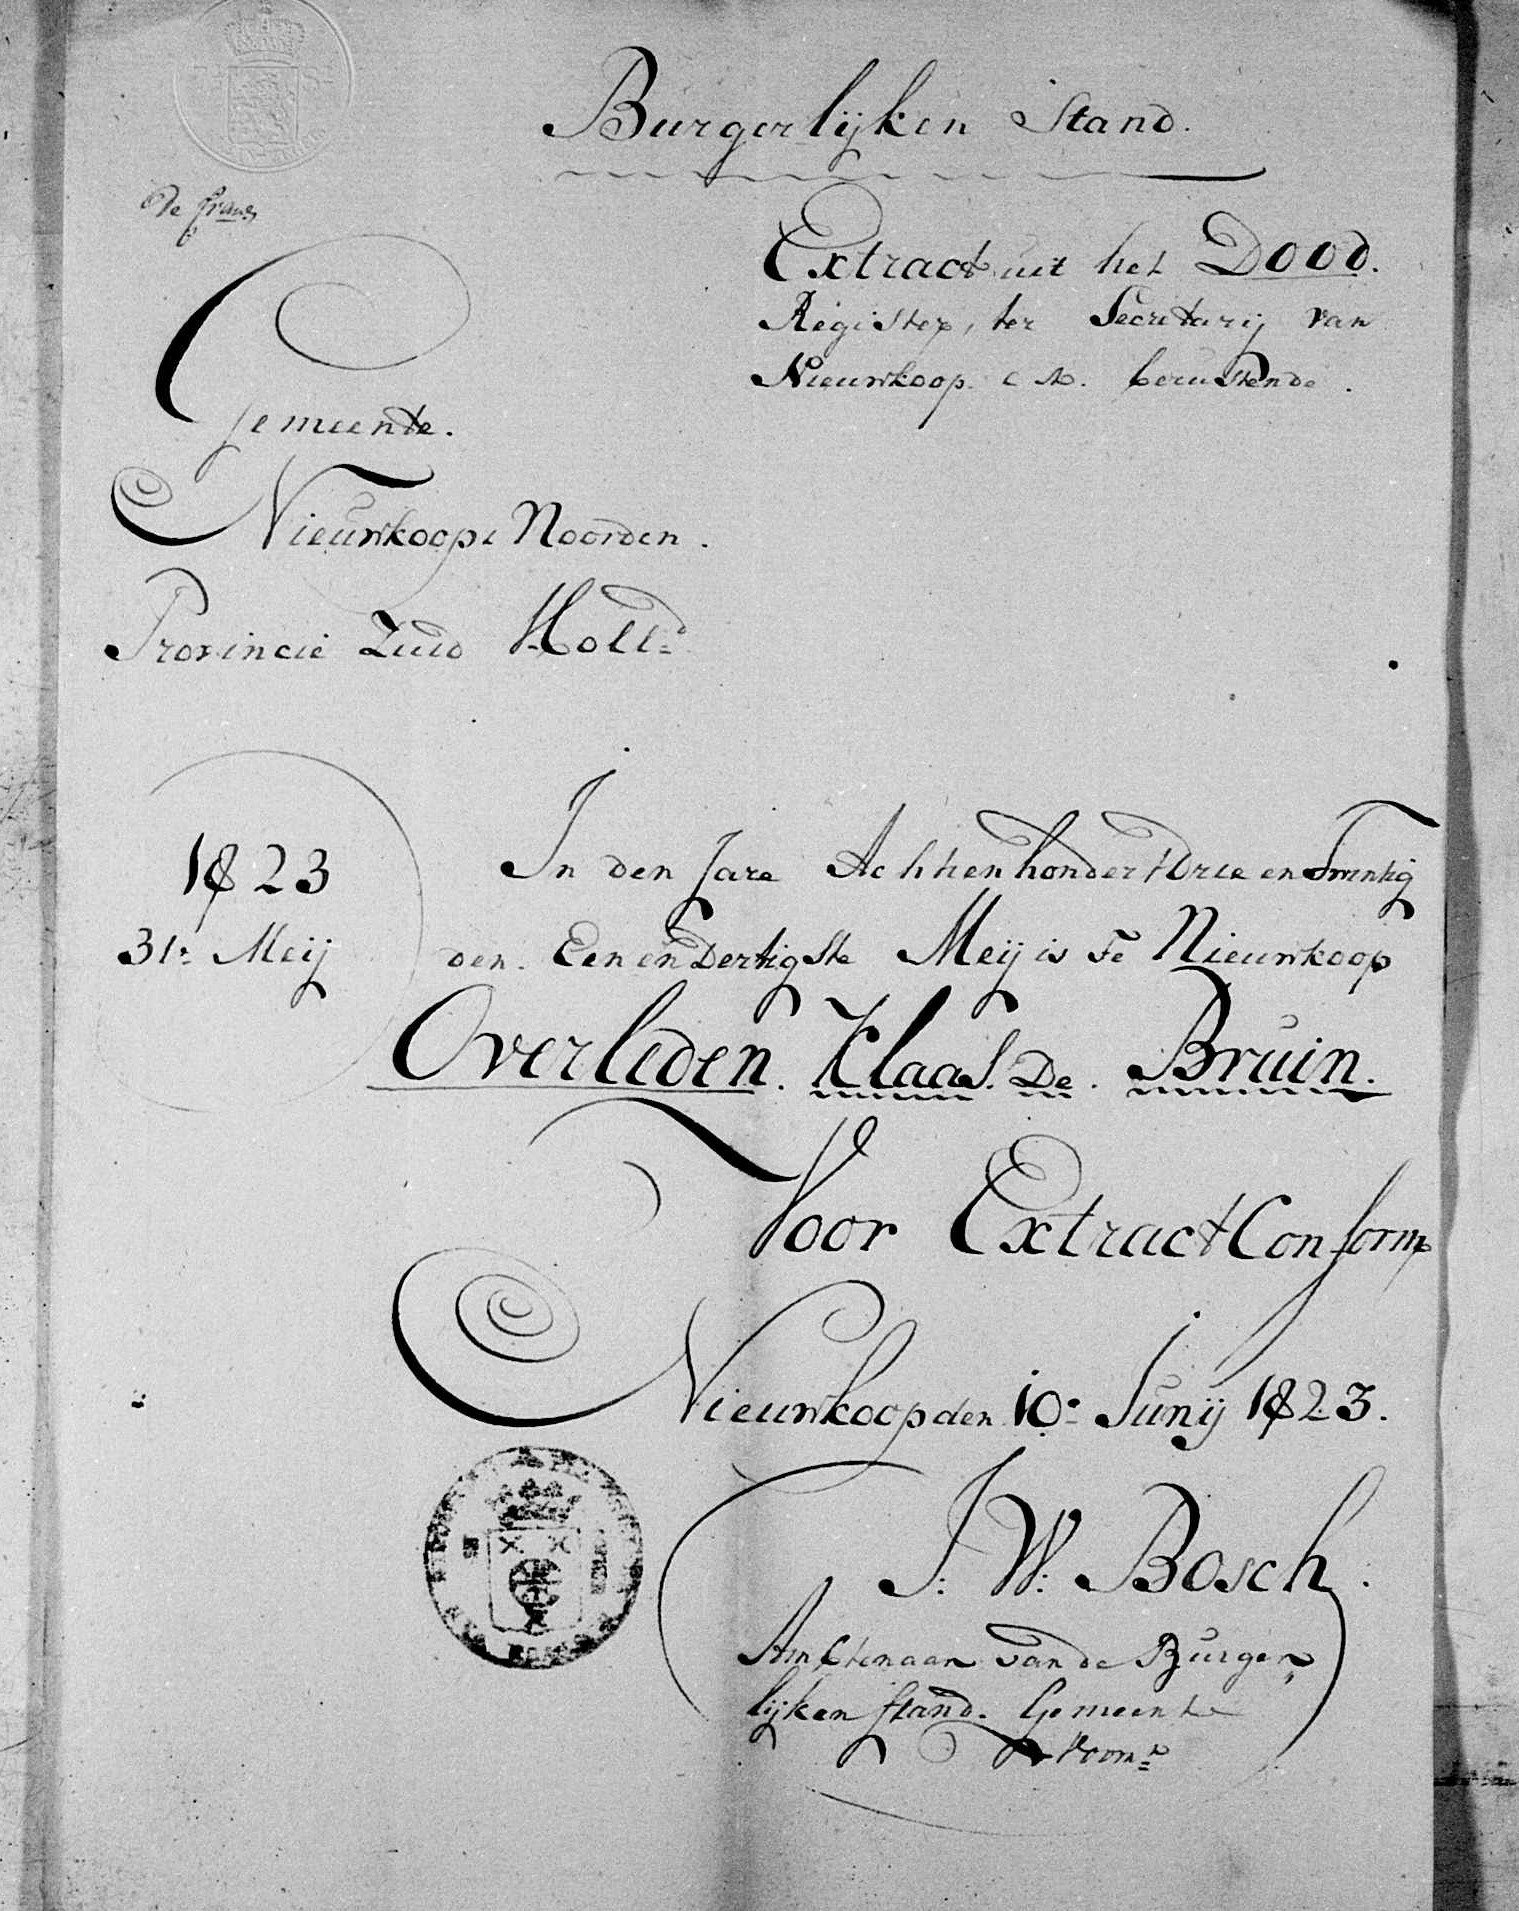 Burgerlijken Stand.
De frans
Extract uit het Dood.
Register, ter Secretarij van
Nieuwkoop c N. berustende.
Gemeente.
Nieuwkoop c Noorden.
Provincie Zuid Holl.d
1823
31e Meij
In den Jare Achtienhondert Drie en Twintig
den. Een en Dertigste Meij is te Nieuwkoop
Overleden. Klaas. De. Bruin.
Voor Extract Conform
Nieuwkoop den 10e Junij 1823.
J: W: Bosch.
Amtenaar van de Burger,
lijken Stand. Gemeente
Voorn.